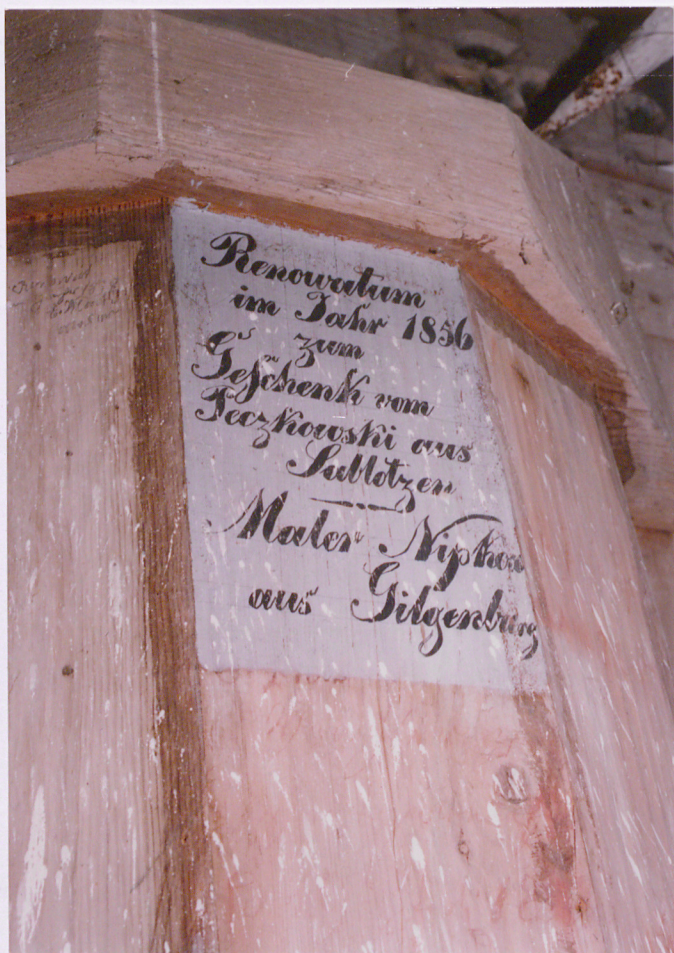 Renowatum
im Jahr 1856
zum
Geschenk vom
Feczkowski aus
Sablotzen
Maler Nipkow
aus Gilgenburg